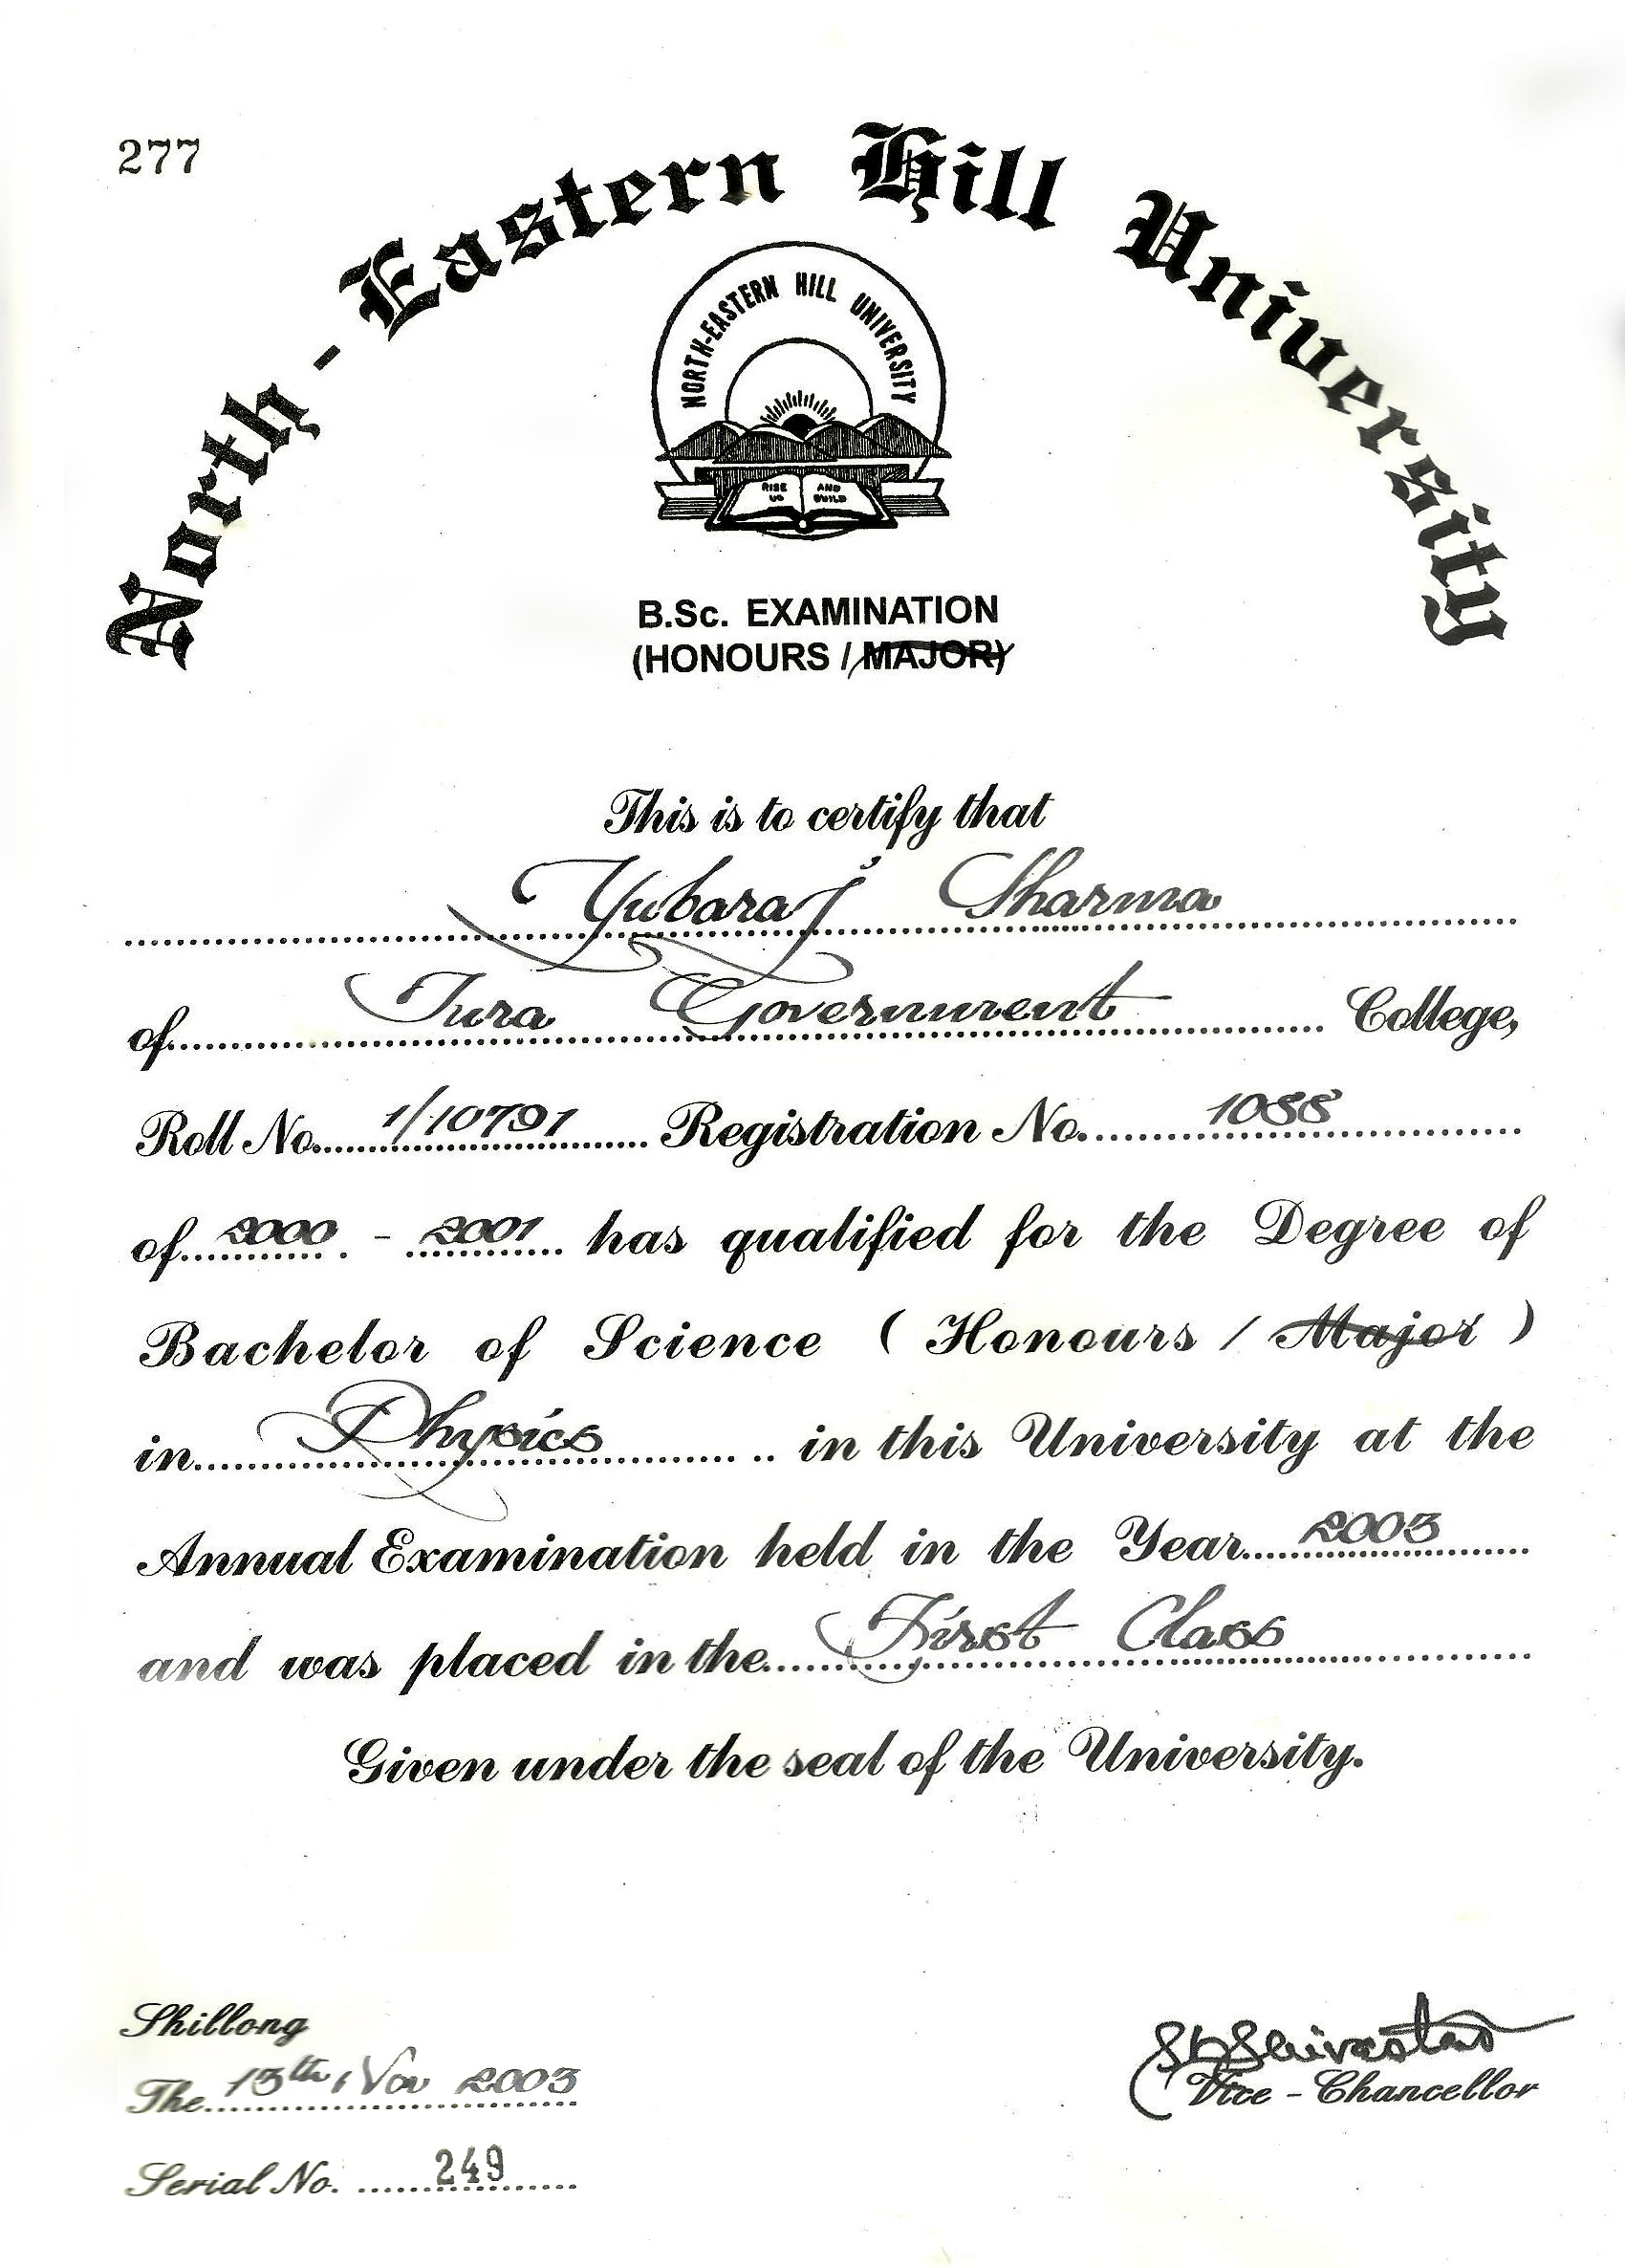 277
North - Eastern Hill University
NORTH-EASTERN HILL UNIVERSITY
RISE UP AND BUILD
B.Sc. EXAMINATION
(HONOURS / MAJOR)
This is to certify that
Yubaraj Sharma
of Tura Government College,
Roll No. 1/10791 Registration No. 1088
of 2000 - 2001 has qualified for the Degree of
Bachelor of Science ( Honours / Major )
in Physics in this University at the
Annual Examination held in the Year 2003
and was placed in the First Class
Given under the seal of the University.
Shillong
The 13th, Nov 2003
Vice - Chancellor
Serial No. 249